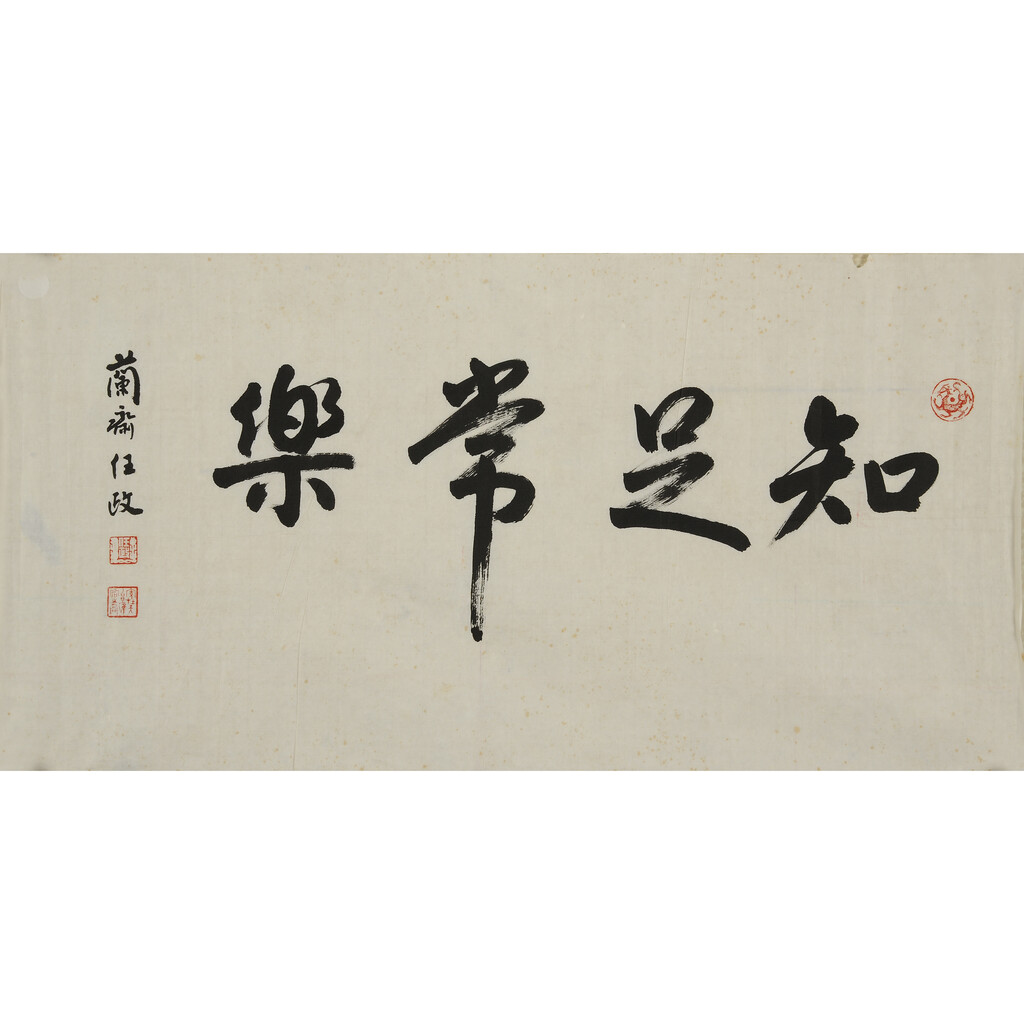 知足常樂
蘭齋任政